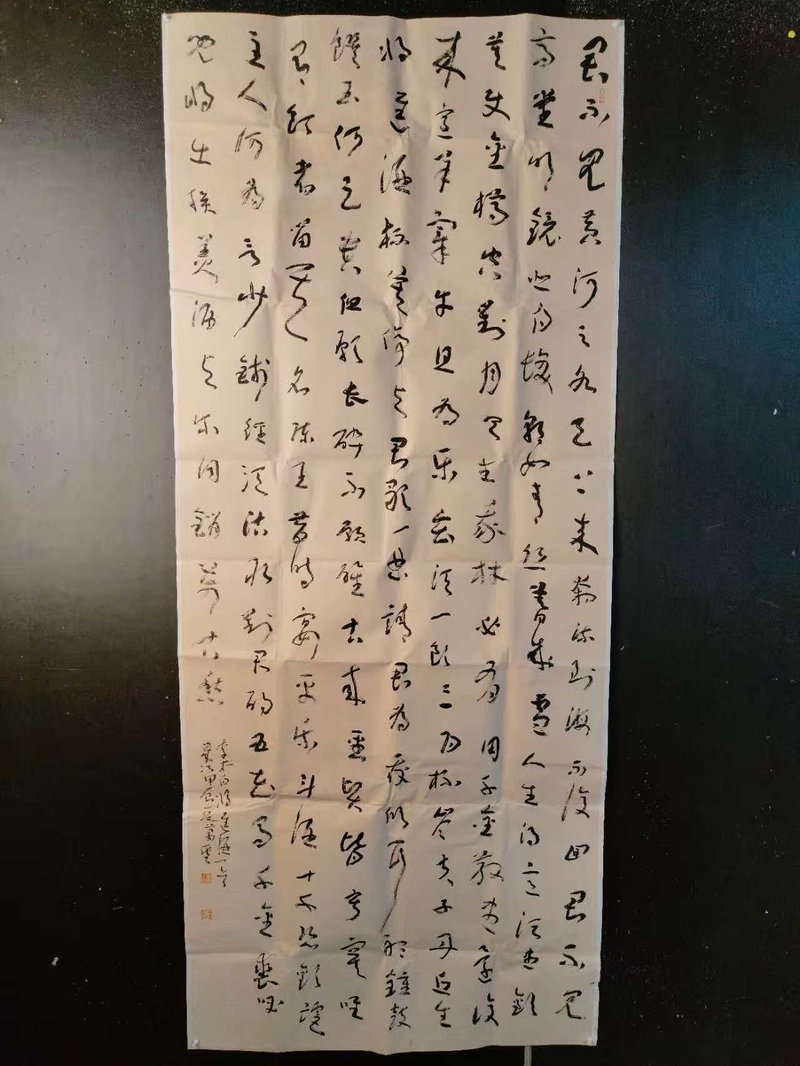 君不見黃河之水天上來奔流到海不復回君不見
高堂明鏡悲白髮朝如青絲暮成雪人生得意須盡歡
莫使金樽空對月天生我材必有用千金散盡還復
來烹羊宰牛且為樂會須一飲三百杯岑夫子丹丘生
將進酒杯莫停與君歌一曲請君為我傾耳聽鐘鼓
饌玉何足貴但願長醉不願醒古來聖賢皆寂寞唯
有飲者留其名陳王昔時宴平樂斗酒十千恣歡謔
主人何為言少錢徑須沽取對君酌五花馬千金裘呼
兒將出換美酒與爾同銷萬古愁
李太白將進酒一首